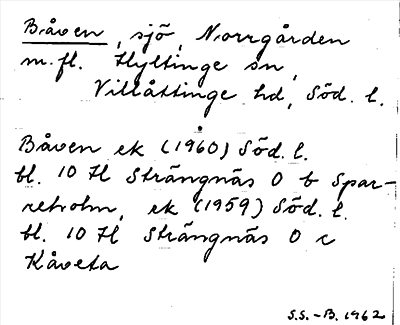 Båven, sjö, Norrgården
m.fl. Hyltinge sn,
Villåttinge hd, Söd. l.
Båven ek (1960) Söd. l.
bl. 10 H Strängnäs O b Spar-
reholm, ek (1959) Söd. l.
bl. 10 H Strängnäs O c
Kåveta
S.S.-B. 1962